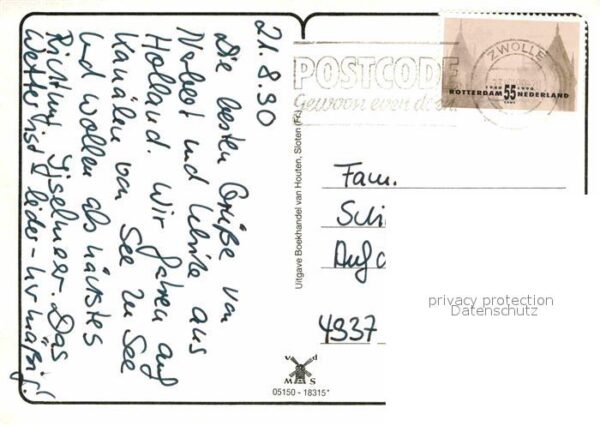 21.8.90
Die besten Grüße von
Norbert und Ulrike aus
Holland. Wir fahren auf
Kanälen von See zu See
und wollen als nächstes
Richtung Ijselmeer. Das
Wetter ist leider nur mäßig!
Uitgave Boekhandel van Houten, Sloten (Fr.)
POSTCODE
Gewoon even doen.
ZWOLLE
1940 1990
ROTTERDAM 55 NEDERLAND
CENT
Fam.
4937
privacy protection
Datenschutz
v d
M S
05150 - 18315*